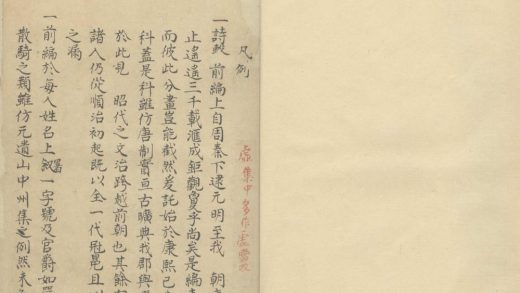 凡例
一詩 前編上自周秦下逮元明至我 朝
止遙遙三千載滙成鉅觀夐乎尚矣是編
而彼此分畫豈能截然爰託始於康熙己
科蓋是科雖仿唐制實亘古曠典我郡與
於此見 昭代之文治跨越前朝也其餘
諸人仍從順治初起既以全一代冠冕且
之漏
一前編於每人姓名上叙一字號及官爵如
散騎之類雖仿元遺山中州集之例然未
集中多作虛當改